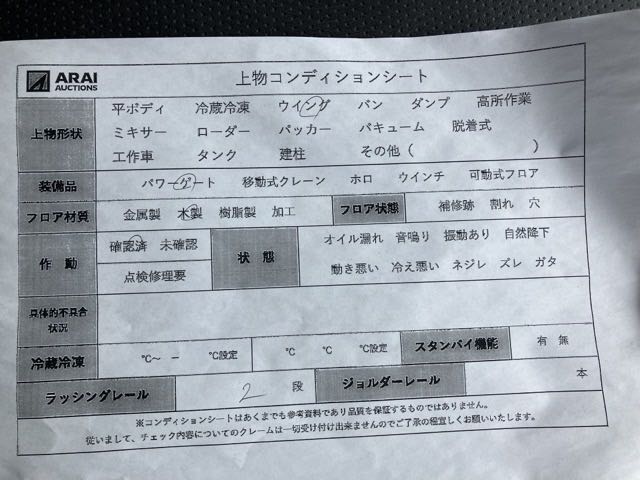 ARAI
AUCTIONS
上物コンディションシート
上物形状
平ボディ 冷蔵冷凍 ウイング バン ダンプ 高所作業
ミキサー ローダー パッカー バキューム 脱着式
工作車 タンク 建柱 その他 ( )
装備品 パワーゲート 移動式クレーン ホロ ウインチ 可動式フロア
フロア材質 金属製 木製 樹脂製 加工 フロア状態 補修跡 割れ 穴
作動 確認済 未確認
点検修理要
状態 オイル漏れ 音鳴り 振動あり 自然降下
動き悪い 冷え悪い ネジレ ズレ ガタ
具体的不具合
状況
冷蔵冷凍 ℃〜 − ℃設定 ℃ ℃ ℃設定 スタンバイ機能 有 無
ラッシングレール 2 段 ジョルダーレール 本
※コンディションシートはあくまでも参考資料であり品質を保証するものではありません。
従いまして、チェック内容についてのクレームは一切受け付け出来ませんのでご了承の程宜しくお願いいたします。